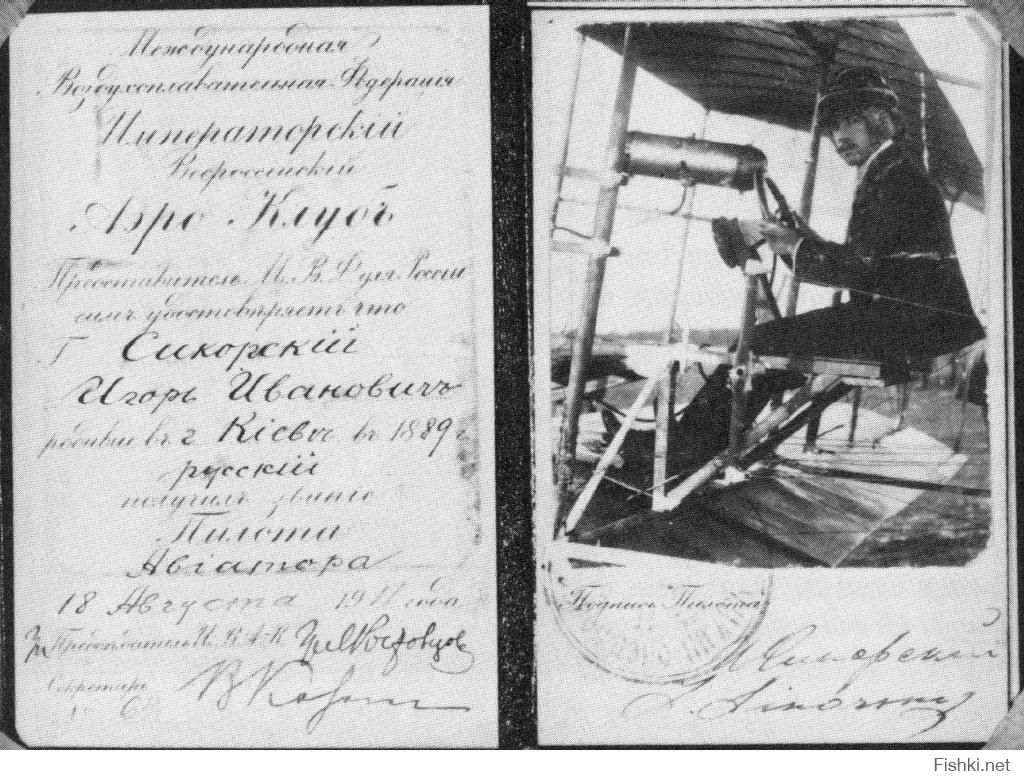 Международная
Воздухоплавательная Федерацiя
Императорскiй
Всероссiйскiй
Аэро Клубъ
Представитель М. В. Ф для Россiи
симъ удостовѣряетъ что
Г Сикорскiй
Игорь Ивановичъ
родивш въ г. Кiевѣ въ 1889 г
русскiй
получилъ званiе
Пилота
Авiатора
18 Августа 1911 года
Предсѣдатель И. В. А. К.
Секретарь
Подпись Пилота
И Сикорскiй
I. Sikorsky
Fishki.net